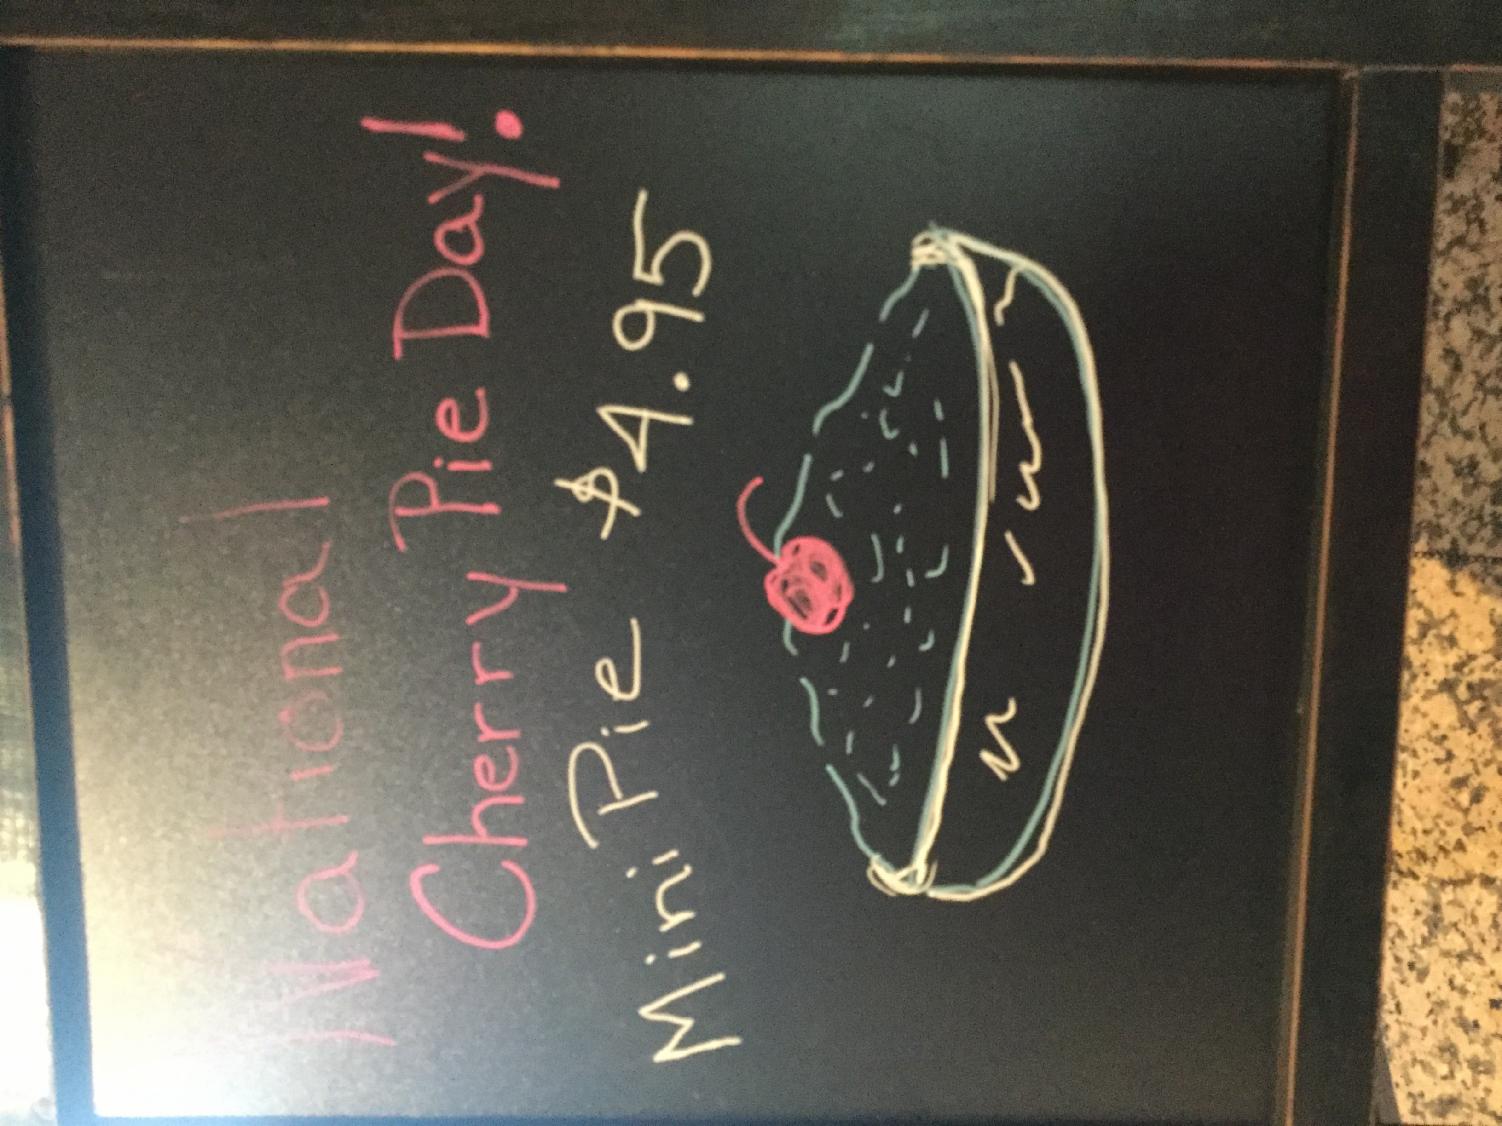 National
Cherry Pie Day!
Mini Pie $4.95